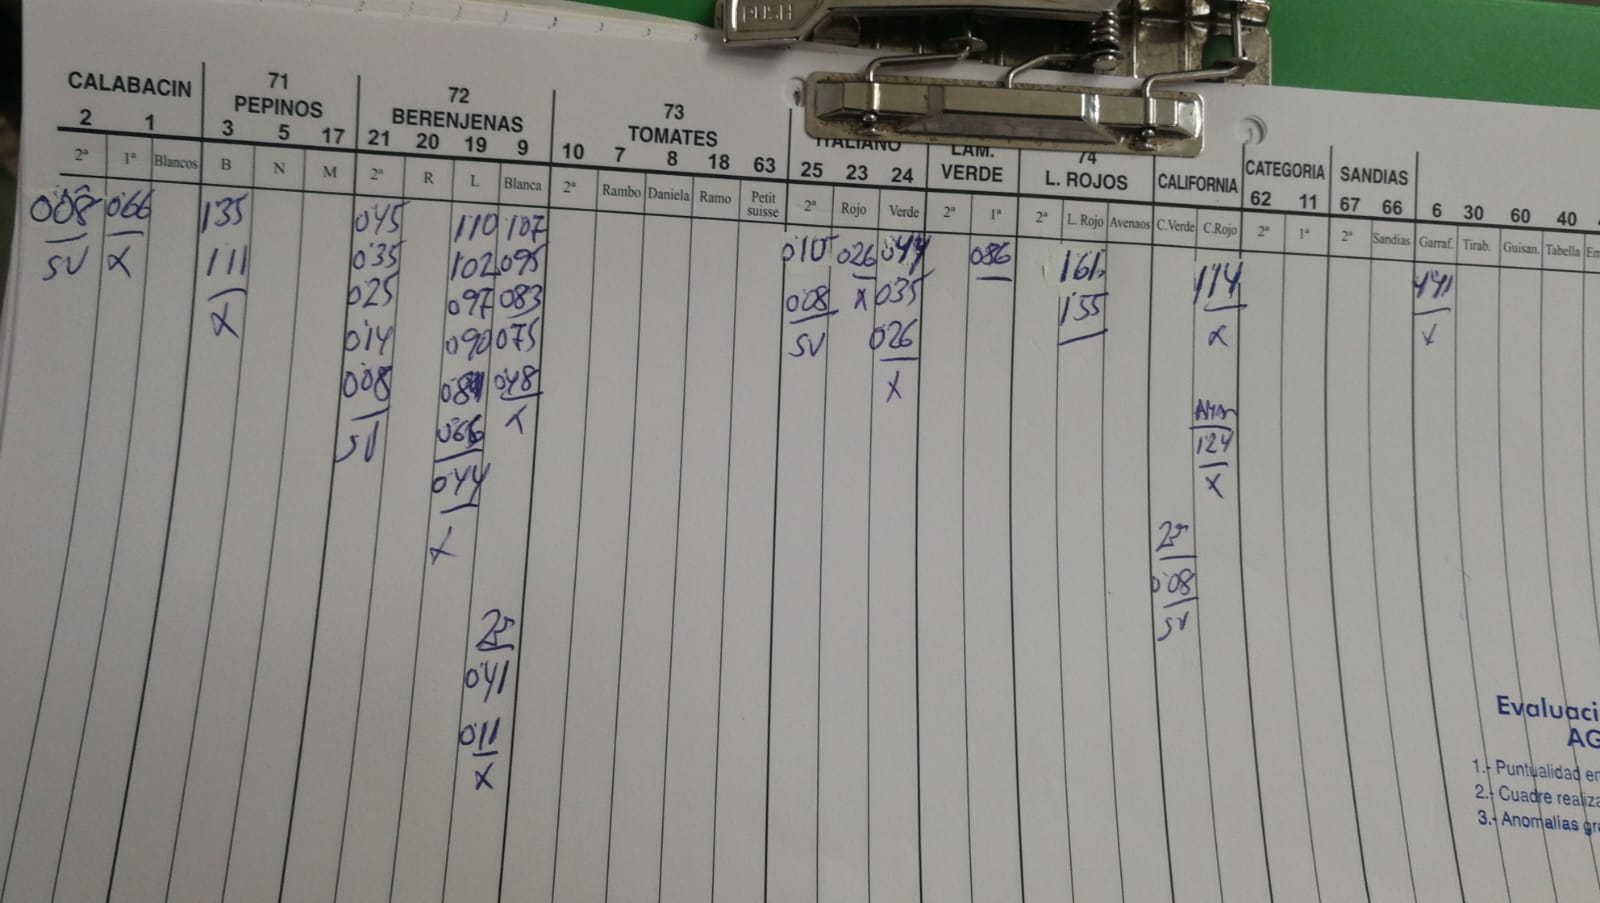 PUSH
CALABACIN 71 PEPINOS 72 BERENJENAS 73 TOMATES ITALIANO LAM. VERDE 74 L. ROJOS CALIFORNIA CATEGORIA SANDIAS
2 1 3 5 17 21 20 19 9 10 7 8 18 63 25 23 24 62 11 67 66 6 30 60 40
2ª 1ª Blancos B N M 2ª R L Blanca 2ª Rambo Daniela Ramo Petit suisse 2ª Rojo Verde 2ª 1ª 2ª L. Rojo Avenaos C.Verde C.Rojo 2ª 1ª 2ª Sandias Garraf. Tirab. Guisan. Tabella
008 066 135 045 110 107 010 026 044 086 161 114 441
SV X 111 035 102 095 008 X 035 155 X X
X 025 097 083 SV 026
014 090 075 X
008 081 048 124
SV 066 X X
044
X
25 008
25 SV
041
011
X
Evaluaci
AG
1.- Puntualidad en
2.- Cuadre realiza
3.- Anomalías gra